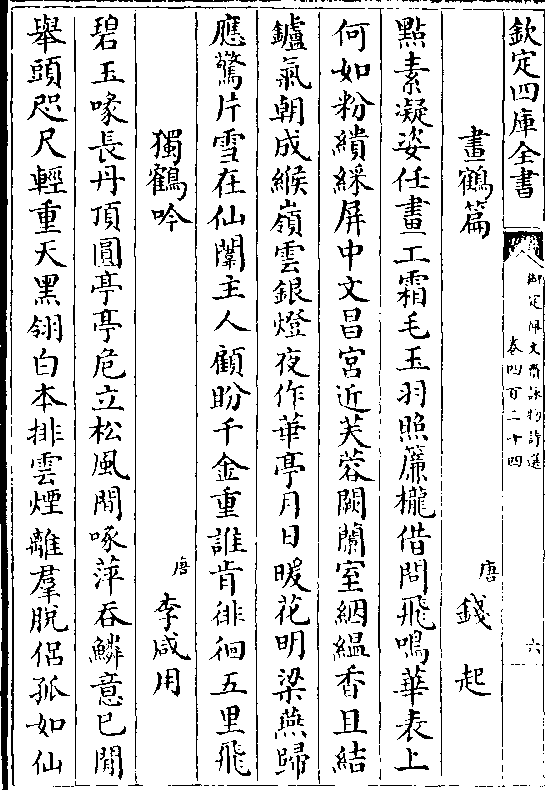 欽定四庫全書
御定佩文齋詠物詩選
卷四百二十四
六
畫鶴篇
唐 錢起
點素凝姿任畫工霜毛玉羽照簾櫳借問飛鳴華表上
何如粉繢綵屏中文昌宮近芙蓉闕蘭室絪縕香且結
鑪氣朝成緱嶺雲銀燈夜作華亭月日暖花明梁燕歸
應驚片雪在仙闈主人顧盼千金重誰肯徘徊五里飛
獨鶴吟
唐 李咸用
碧玉喙長丹頂圓亭亭危立松風間啄萍吞鱗意已閒
舉頭咫尺輕重天黑翎白本排雲煙離羣脫侶孤如仙